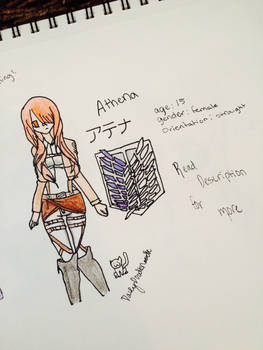 Athena
アテナ
age: 15
gender: female
orientation: straight
Read
Description
for
more